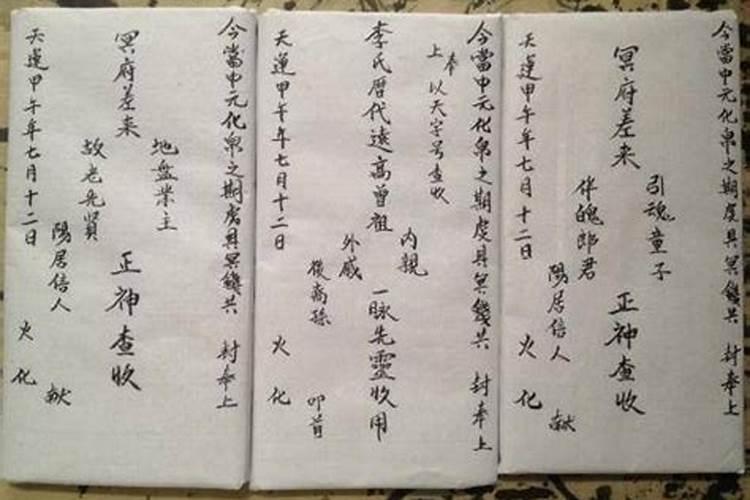 今當中元化帛之期虔具冥錢共 封奉上
冥府差来
引魂童子
伴魄郎君
正神查收
陽居信人 献
天運甲午年七月十二日 火化
今當中元化帛之期虔具冥錢共 封奉上
奉上 以天字号查收
李氏暦代遠高曾祖
内親
外戚
一脉先靈收用
後裔孫 叩首
天運甲午年七月十二日 火化
今當中元化帛之期虔具冥錢共 封奉上
冥府差来
地盤業主
故老先賢
正神查收
陽居信人 献
天運甲午年七月十二日 火化